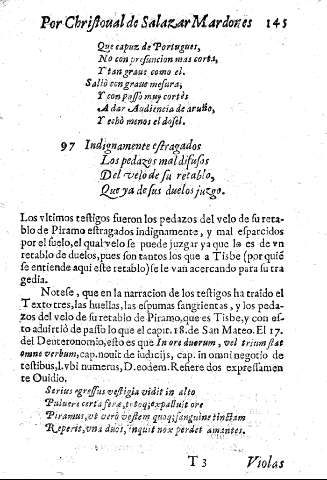 Por Christoual de Salazar Mardones 145
Que capuz de Portugues,
No con presuncion mas corta,
Y tan graue como el.
Salio con graue mesura,
Y con passo muy cortès
A dar Audiencia de
Y echò menos el dosel.
97 Indignamente estragados
Los pedazos mal difusos
Del velo de su retablo,
Que ya de sus duelos juzgo.
Los vltimos testigos fueron los pedazos del velo de su reta-
blo de Piramo estragados indignamente, y mal esparcidos
por el suelo, el qual velo se puede juzgar ya que lo es de vn
retablo de duelos, pues son tantos los que a Tisbe (por quiē
se entiende aqui este retablo) se le van acercando para su tra
gedia.
Notese, que en la narracion de los testigos ha traido el
Texto tres, las huellas, las espumas sangrientas, y los peda-
zos del velo de su retablo de Piramo, que es Tisbe, y con es-
to aduirtiò de passo lo que el capit. 18. de San Mateo. El 17.
del Deuteronomio, esto es que In ore duorum, vel trium stat
omne verbum, cap. nouit de iudicijs, cap. in omni negotio de
testibus, l. vbi numerus, D. eodem. Refiere dos expressamen
te Ouidio.
Serius egressus vestigia vidit in alto
Puluere certa feræ, totoq; expalluit ore
Piramus, vt verò vestem quoq; sanguine tinctam
Reperit, vna duos, inquit nox perdet amantes.
T 3 Violas